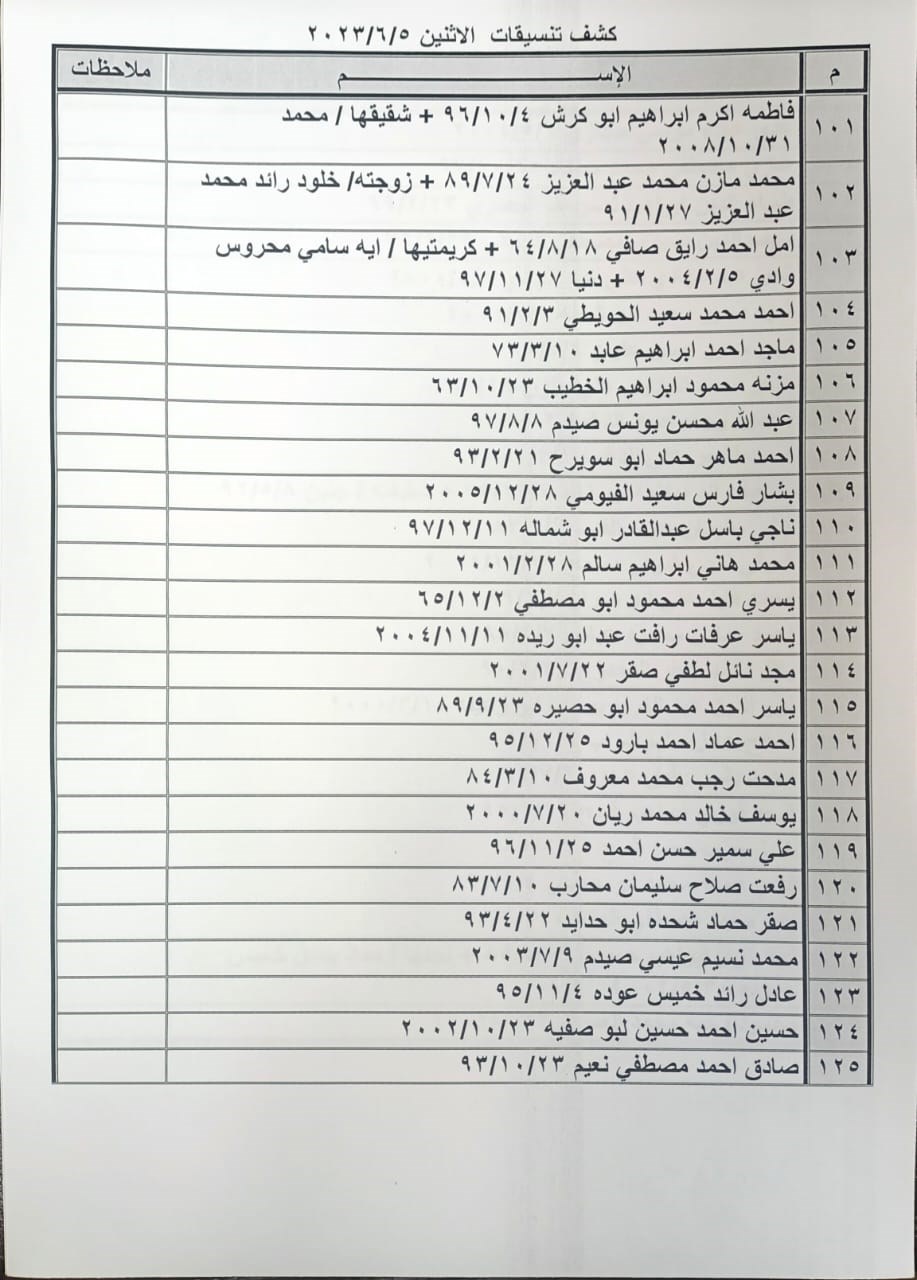 كشف تنسيقات الاثنين ٢٠٢٣/٦/٥
م الإســـــــــــــــــــم ملاحظات
١٠١ فاطمه اكرم ابراهيم ابو كرش ٩٦/١٠/٤ + شقيقها / محمد
٢٠٠٨/١٠/٣١
١٠٢ محمد مازن محمد عبد العزيز ٨٩/٧/٢٤ + زوجته/ خلود رائد محمد
عبد العزيز ٩١/١/٢٧
١٠٣ امل احمد رايق صافي ٦٤/٨/١٨ + كريمتيها / ايه سامي محروس
وادي ٢٠٠٤/٢/٥ + دنيا ٩٧/١١/٢٧
١٠٤ احمد محمد سعيد الحويطي ٩١/٢/٣
١٠٥ ماجد احمد ابراهيم عابد ٧٣/٣/١٠
١٠٦ مزنه محمود ابراهيم الخطيب ٦٣/١٠/٢٣
١٠٧ عبد الله محسن يونس صيدم ٩٧/٨/٨
١٠٨ احمد ماهر حماد ابو سويرح ٩٣/٢/٢١
١٠٩ بشار فارس سعيد الفيومي ٢٠٠٥/١٢/٢٨
١١٠ ناجي باسل عبدالقادر ابو شماله ٩٧/١٢/١١
١١١ محمد هاني ابراهيم سالم ٢٠٠١/٢/٢٨
١١٢ يسري احمد محمود ابو مصطفي ٦٥/١٢/٢
١١٣ ياسر عرفات رافت عبد ابو ريده ٢٠٠٤/١١/١١
١١٤ مجد نائل لطفي صقر ٢٠٠١/٧/٢٢
١١٥ ياسر احمد محمود ابو حصيره ٨٩/٩/٢٣
١١٦ احمد عماد احمد بارود ٩٥/١٢/٢٥
١١٧ مدحت رجب محمد معروف ٨٤/٣/١٠
١١٨ يوسف خالد محمد ريان ٢٠٠٠/٧/٢٠
١١٩ علي سمير حسن احمد ٩٦/١١/٢٥
١٢٠ رفعت صلاح سليمان محارب ٨٣/٧/١٠
١٢١ صقر حماد شحده ابو حدايد ٩٣/٤/٢٢
١٢٢ محمد نسيم عيسي صيدم ٢٠٠٣/٧/٩
١٢٣ عادل رائد خميس عوده ٩٥/١١/٤
١٢٤ حسين احمد حسين لبو صفيه ٢٠٠٢/١٠/٢٣
١٢٥ صادق احمد مصطفي نعيم ٩٣/١٠/٢٣